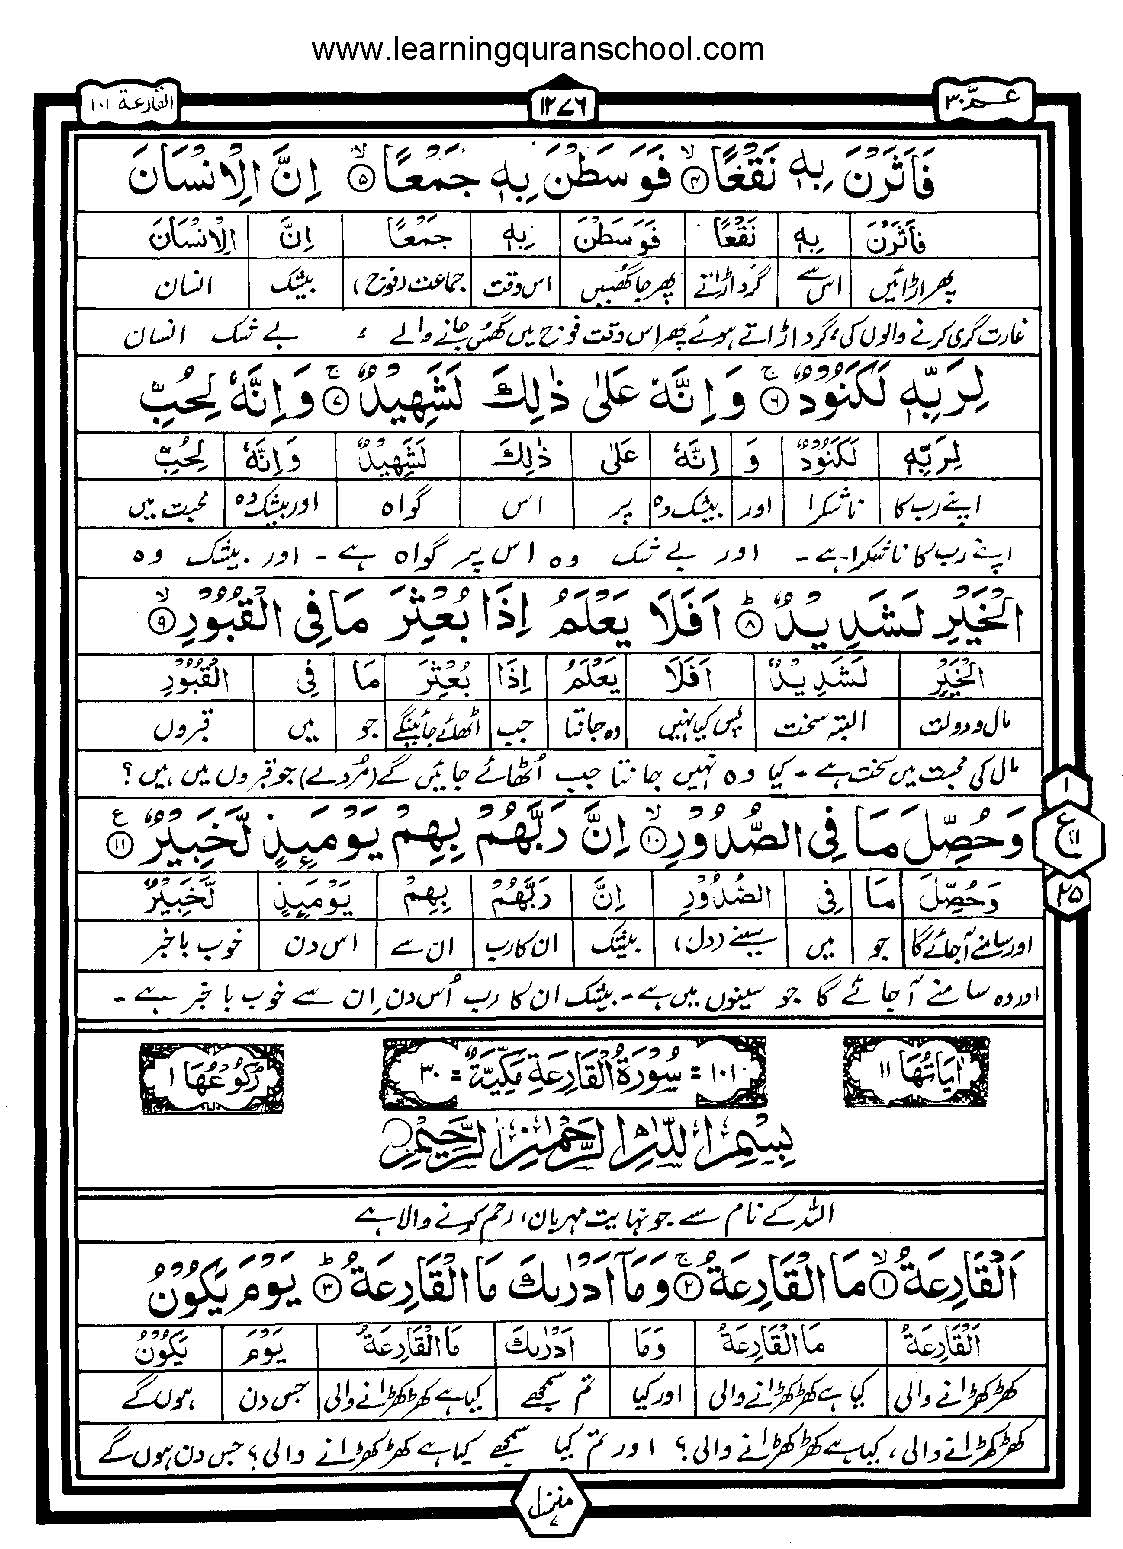 www.learningquranschool.com
عـمّ ۳۰ ۱۲۷۶ القارعة ۱۰۱
فَاَثَرْنَ بِهٖ نَقْعًا ۙ﴿۴﴾ فَوَسَطْنَ بِهٖ جَمْعًا ۙ﴿۵﴾ اِنَّ الْاِنْسَانَ
فَاَثَرْنَ بِهٖ نَقْعًا فَوَسَطْنَ بِهٖ جَمْعًا اِنَّ الْاِنْسَانَ
پھر اڑائیں اس سے گرد اڑاتے پھر جا گھسیں اس وقت جماعت (فوج) بیشک انسان
غارت گری کرنے والوں کی، گرد اڑاتے ہوئے پھر اس وقت فوج میں گھس جانے والے ء بے شک انسان
لِرَبِّهٖ لَكَنُوْدٌ ۚ﴿۶﴾ وَاِنَّهٗ عَلٰى ذٰلِكَ لَشَهِيْدٌ ۚ﴿۷﴾ وَاِنَّهٗ لِحُبِّ
لِرَبِّهٖ لَكَنُوْدٌ وَ اِنَّهٗ عَلٰى ذٰلِكَ لَشَهِيْدٌ وَاِنَّهٗ لِحُبِّ
اپنے رب کا ناشکرا اور بیشک وہ پر اس گواہ اور بیشک وہ محبت میں
اپنے رب کا ناشکرا ہے - اور بے شک وہ اس پر گواہ ہے - اور بیشک وہ
الْخَيْرِ لَشَدِيْدٌ ؕ﴿۸﴾ اَفَلَا يَعْلَمُ اِذَا بُعْثِرَ مَا فِى الْقُبُوْرِ ۙ﴿۹﴾
الْخَيْرِ لَشَدِيْدٌ اَفَلَا يَعْلَمُ اِذَا بُعْثِرَ مَا فِى الْقُبُوْرِ
مال و دولت البتہ سخت پس کیا نہیں وہ جانتا جب اٹھائے جائینگے جو میں قبروں
مال کی محبت میں سخت ہے - کیا وہ نہیں جانتا جب اُٹھائے جائیں گے (مُردے) جو قبروں میں ہیں؟
۱
وَحُصِّلَ مَا فِى الصُّدُوْرِ ۙ﴿۱۰﴾ اِنَّ رَبَّهُمْ بِهِمْ يَوْمَئِذٍ لَّخَبِيْرٌ ﴿۱۱﴾ ع
ع ۱۱
وَحُصِّلَ مَا فِى الصُّدُوْرِ اِنَّ رَبَّهُمْ بِهِمْ يَوْمَئِذٍ لَّخَبِيْرٌ
۲۵
اور سامنے آجائے گا جو میں سینے (دل) بیشک ان کا رب ان سے اس دن خوب باخبر
اور وہ سامنے آجائے گا جو سینوں میں ہے - بیشک ان کا رب اُس دن اِن سے خوب باخبر ہے -
اٰيَاتُهَا ۱۱ ۱۰۱ = سُوْرَةُ الْقَارِعَةِ مَكِّيَّةٌ = ۳۰ رُكُوْعُهَا ۱
بِسْمِ اللّٰهِ الرَّحْمٰنِ الرَّحِيْمِ
اللہ کے نام سے جو نہایت مہربان، رحم کرنے والا ہے
اَلْقَارِعَةُ ۙ﴿۱﴾ مَا الْقَارِعَةُ ۚ﴿۲﴾ وَمَاۤ اَدْرٰىكَ مَا الْقَارِعَةُ ؕ﴿۳﴾ يَوْمَ يَكُوْنُ
اَلْقَارِعَةُ مَا الْقَارِعَةُ وَمَا اَدْرٰىكَ مَا الْقَارِعَةُ يَوْمَ يَكُوْنُ
کھڑکھڑانے والی کیا ہے کھڑکھڑانے والی اور کیا تم سمجھے کیا ہے کھڑکھڑانے والی جس دن ہوں گے
کھڑکھڑانے والی، کیا ہے کھڑکھڑانے والی؟ اور تم کیا سمجھے کیا ہے کھڑکھڑانے والی؟ جس دن ہوں گے
منزل ۷